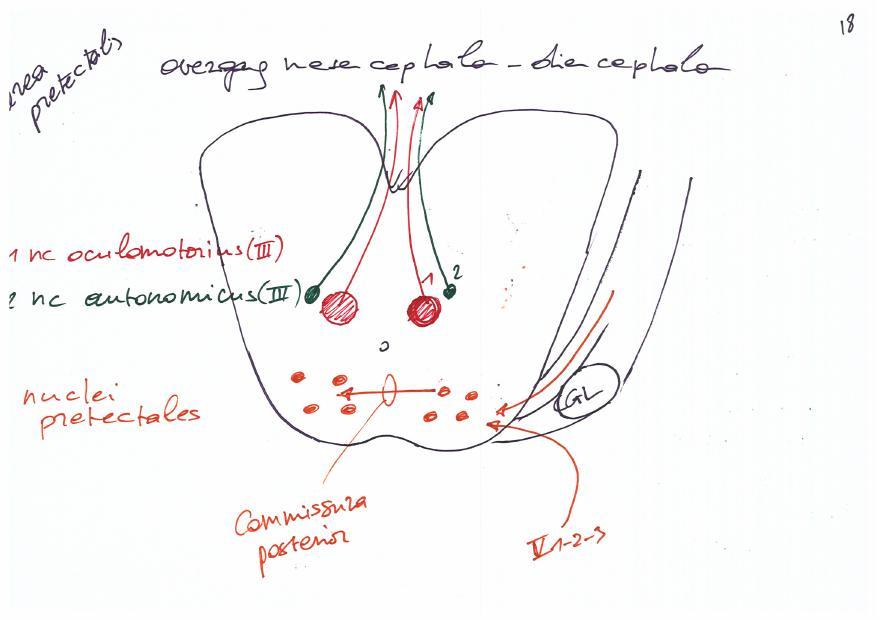 18
area
pretectalis
overgang mesencephalo - diencephalo
1 nc oculomotorius (III)
2 nc autonomicus (III)
1
2
nuclei
pretectales
GL
Commissura
posterior
V1-2-3